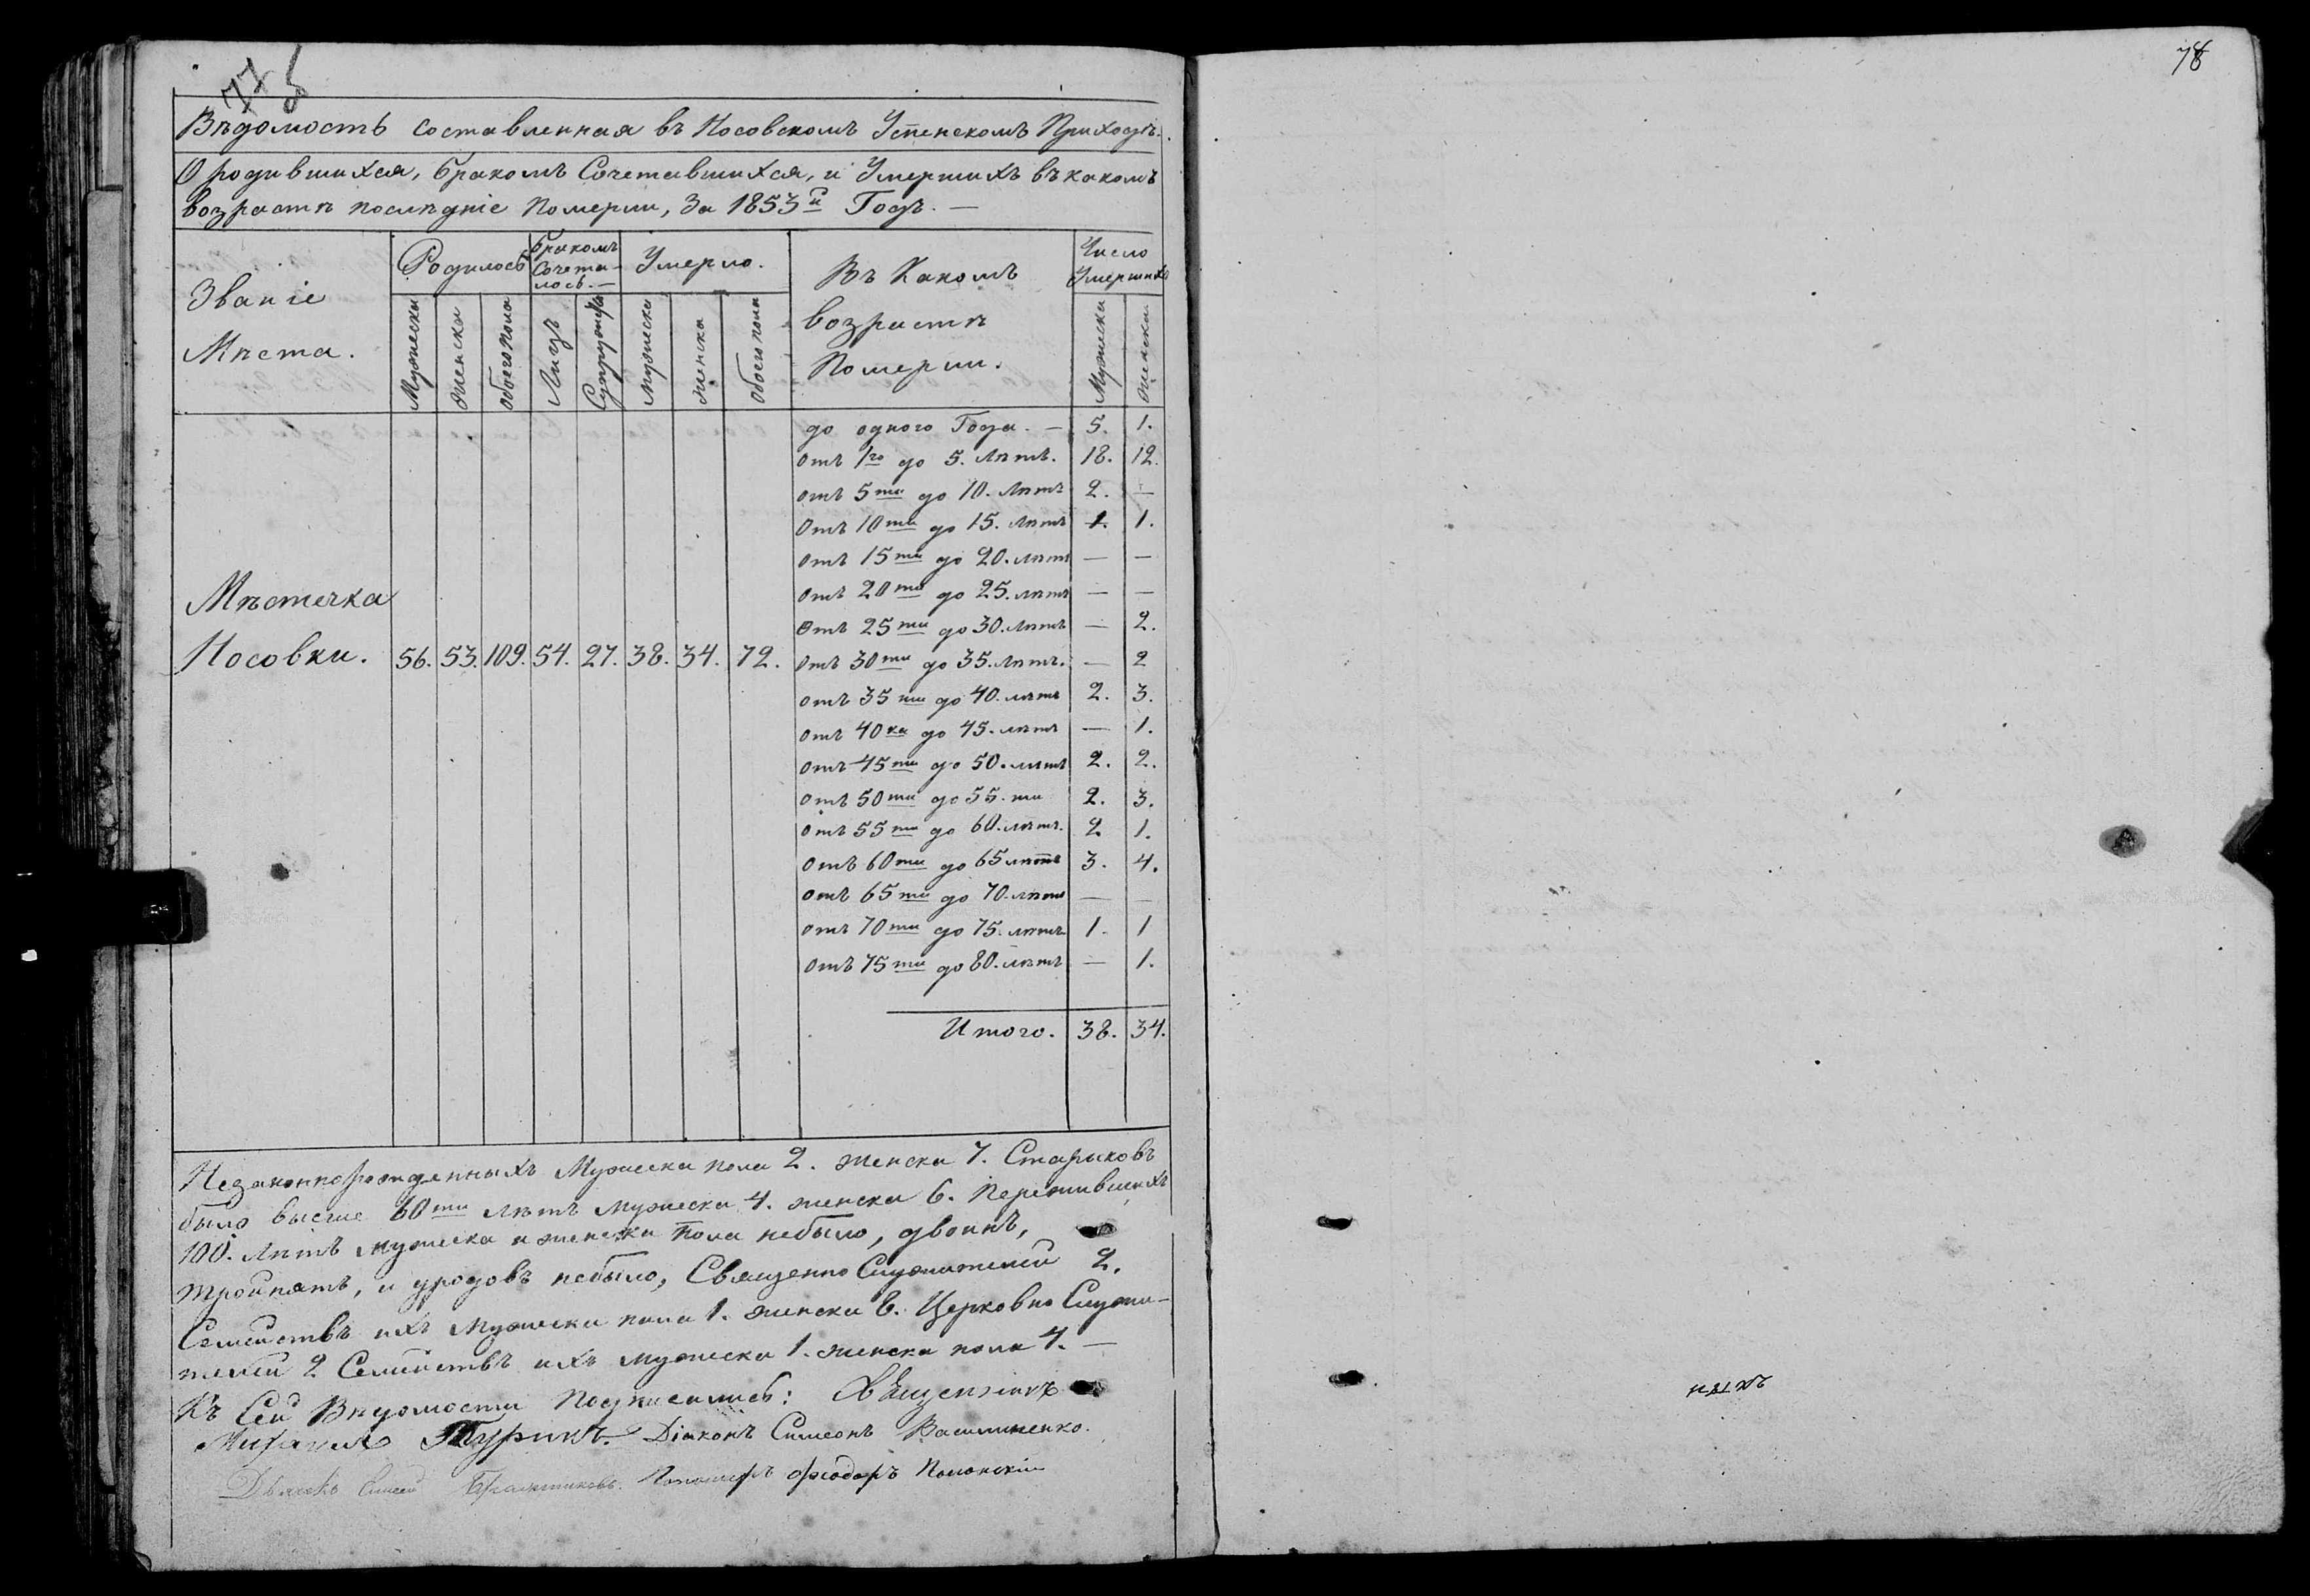 77
78
Вѣдомость составленная въ Носовскомъ Успенскомъ Приходѣ.
О родившихся, бракомъ Сочетавшихся, и Умершихъ въ какомъ
возрастѣ послѣдніе Померли, За 1853й Годъ. —
Званіе Мѣста.
Родилось
бракомъ Сочеталось. —
Умерло.
Въ Какомъ возрастѣ Померли.
Число Умершихъ
Мужеска женска обоего пола Лицъ Супружествъ мужеска женска обоего пола Мужеска женска
Мѣстечка
Носовки. 56. 53. 109. 54. 27. 38. 34. 72.
до одного Года. — 5. 1.
отъ 1го до 5. Лѣтъ. 18. 12.
отъ 5ти до 10. Лѣтъ 2. —
отъ 10ти до 15. Лѣтъ 1. 1.
отъ 15ти до 20. лѣтъ — —
отъ 20ти до 25. лѣтъ — —
отъ 25ти до 30. лѣтъ — 2.
отъ 30ти до 35. Лѣтъ. — 2
отъ 35ти до 40. лѣтъ 2. 3.
отъ 40ка до 45. лѣтъ — 1.
отъ 45ти до 50. лѣтъ 2. 2.
отъ 50ти до 55. ти 2. 3.
отъ 55ти до 60. лѣтъ. 2 1.
отъ 60ти до 65 лѣтъ 3. 4.
отъ 65ти до 70. лѣтъ — —
отъ 70ти до 75. лѣтъ 1. 1
отъ 75ти до 80. лѣтъ — 1.
Итого. 38. 34.
Незаконнорожденныхъ Мужеска пола 2. женска 7. Стариковъ
было высше 60ти лѣтъ мужеска 4. женска 6. Пережившихъ
100. лѣтъ мужеска и женска пола небыло, двоинъ,
тройнятъ, и уродовъ небыло, Священно Служителей 2.
Семействъ ихъ Мужеска пола 1. женска 6. Церковно Служи-
телей 2 Семействъ ихъ мужеска 1. женска пола 4. —
Къ Сей Вѣдомости Подписались: Священникъ
Михаилъ Діаконъ Симеонъ Василененко.
Дьячокъ Пономарь Феодоръ Полонскій
ныхъ